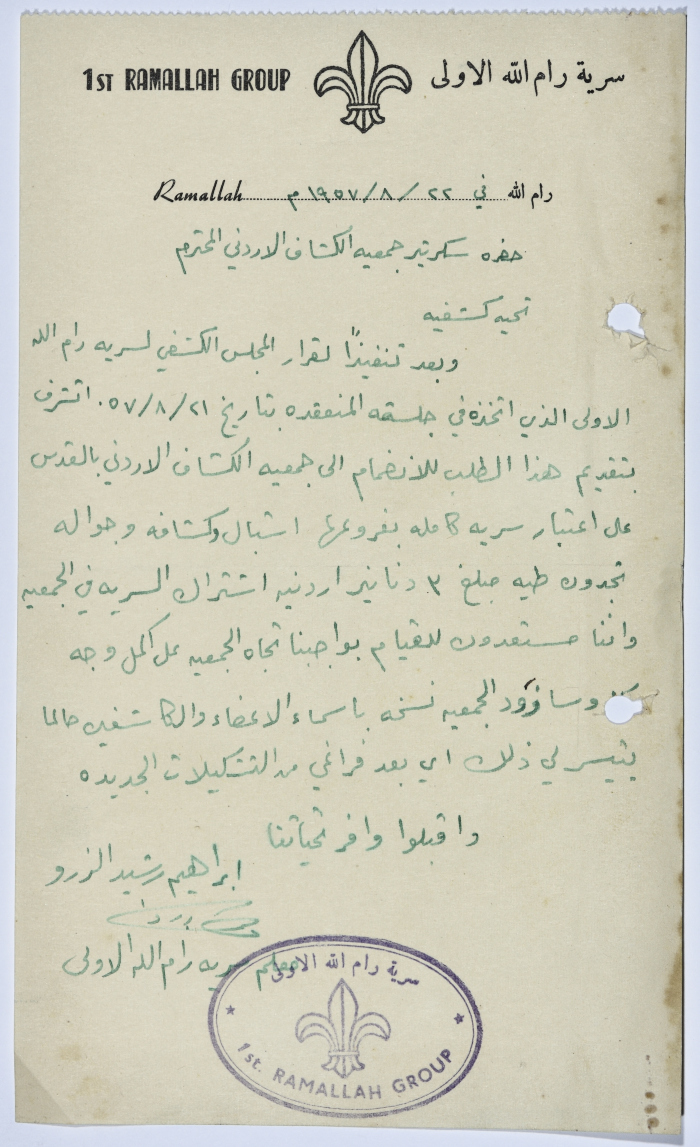 1ST RAMALLAH GROUP سرية رام الله الاولى
رام الله في ٢٢ /٨/ ١٩٥٧ م Ramallah
حضره سكرتير جمعيه الكشاف الاردني المحترم
تحيه كشفيه
وبعد تنفيذاً لقرار المجلس الكشفي لسريه رام الله
الاولى الذي اتخذه في جلسته المنعقده بتاريخ ٢١/ ٨/ ٥٧. اتشرف
بتقديم هذا الطلب للانضمام الى جمعيه الكشاف الاردني بالقدس
على اعتبار سريه كامله بفروعها اشبال وكشافه وجواله
تجدون طيه مبلغ ٣ دنانير اردنيه اشتراك السريه في الجمعيه
واننا مستعدون للقيام بواجبنا تجاه الجمعيه على اكمل وجه
وسازود الجمعيه نسخه باسماء الاعضاء والكاشفين حالما
يتيسر لي ذلك اي بعد فراغي من التشكيلات الجديده
واقبلوا وافر تحياتنا
ابراهيم رشيد الزرو
معلم سريه رام الله الاولى
سرية رام الله الاولى
1st. RAMALLAH GROUP